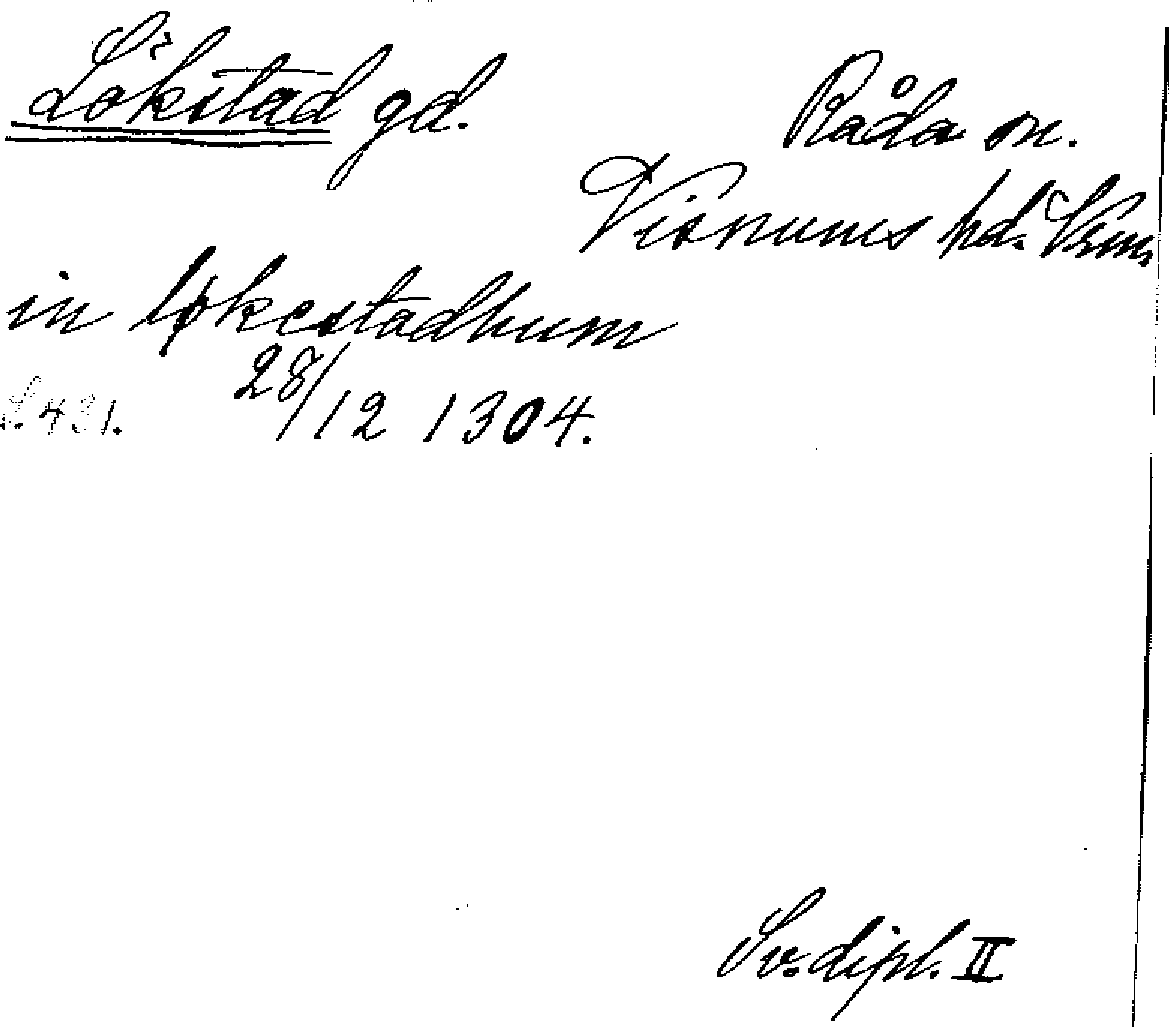 Lökstad gd.
Råda sn.
Visnums hd. Vrm.
in løkestadhum
S. 431. 28/12 1304.
Sv. dipl. II